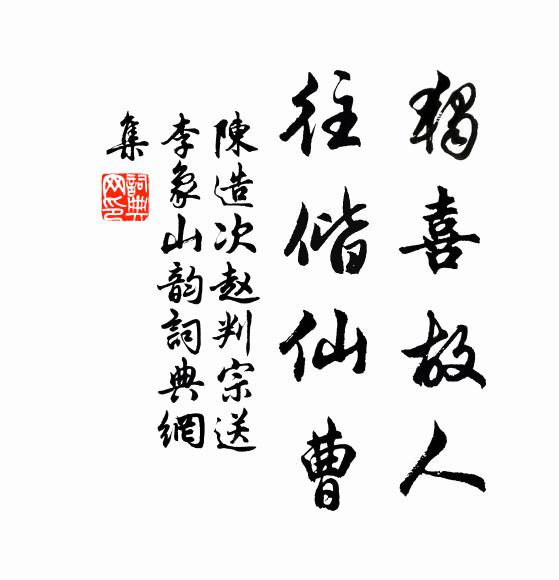 獨喜故人
往偕仙曹
陳造次赵判宗送
李象山韵詞典網
集
詞典
网印